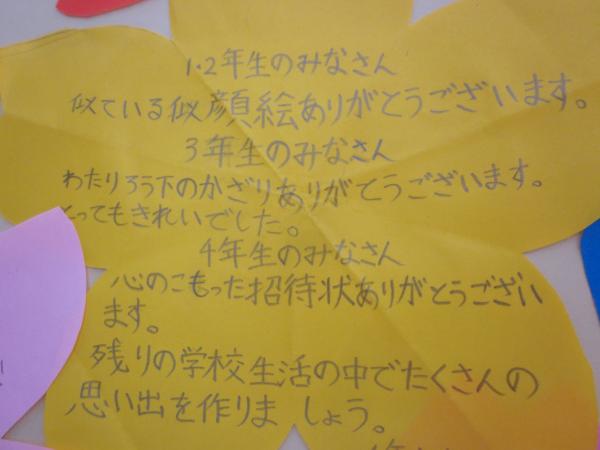 1・2年生のみなさん
似ている似顔絵ありがとうございます。
3年生のみなさん
わたりろう下のかざりありがとうございます。
とってもきれいでした。
4年生のみなさん
心のこもった招待状ありがとうござい
ます。
残りの学校生活の中でたくさんの
思い出を作りま しょう。